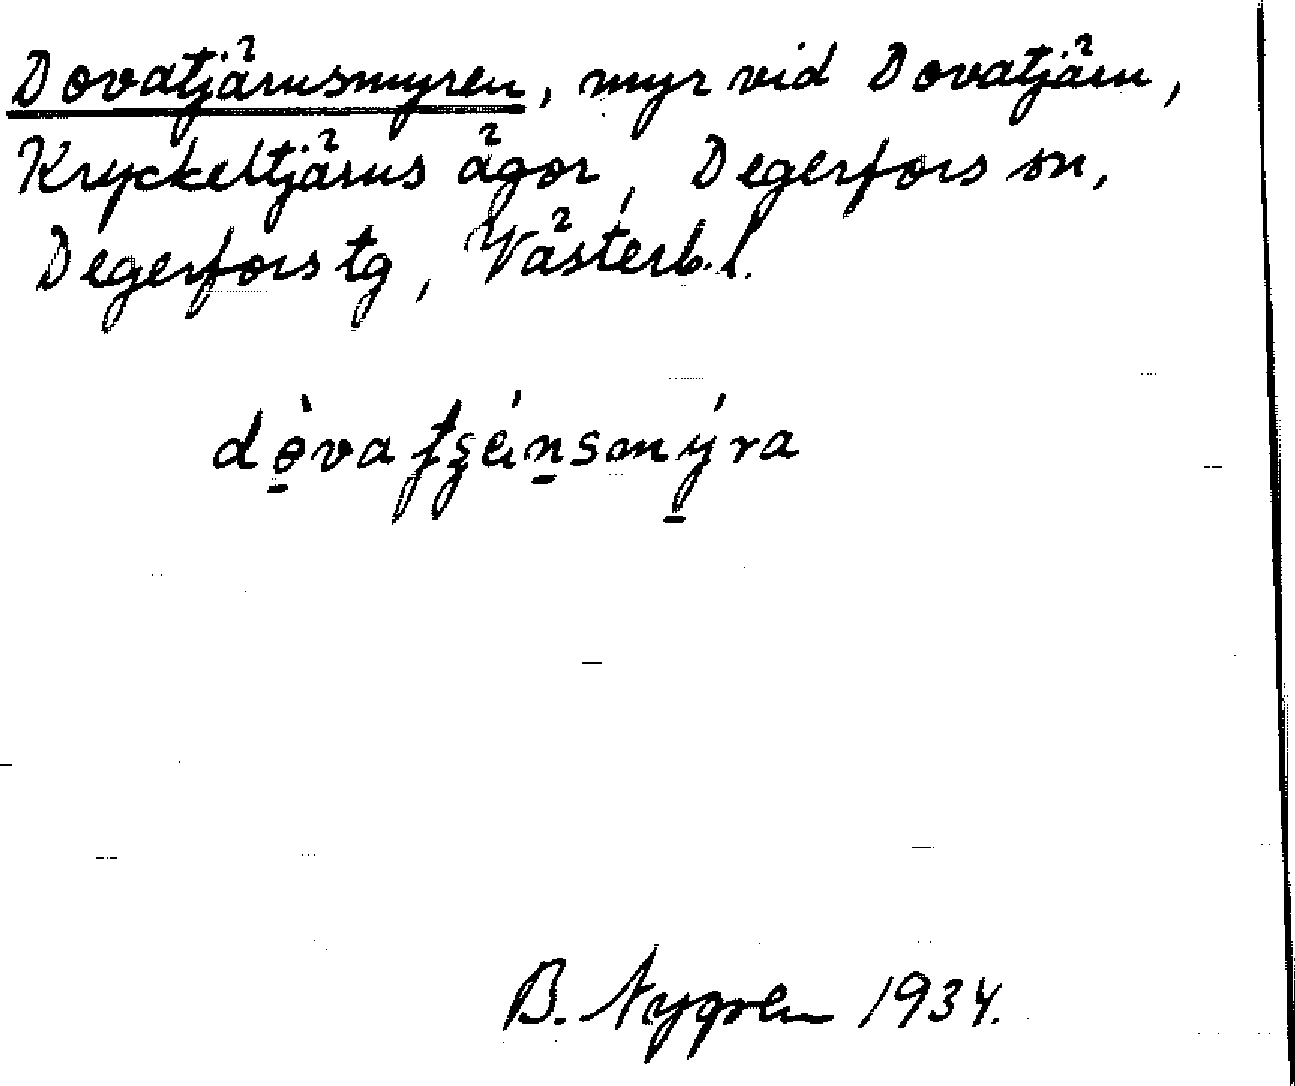 Dovatjärnsmyren, myr vid Dovatjärn,
Kryckeltjärns ägor, Degerfors sn,
Degerfors tg, Västerb.l.
B. Nygren 1934.